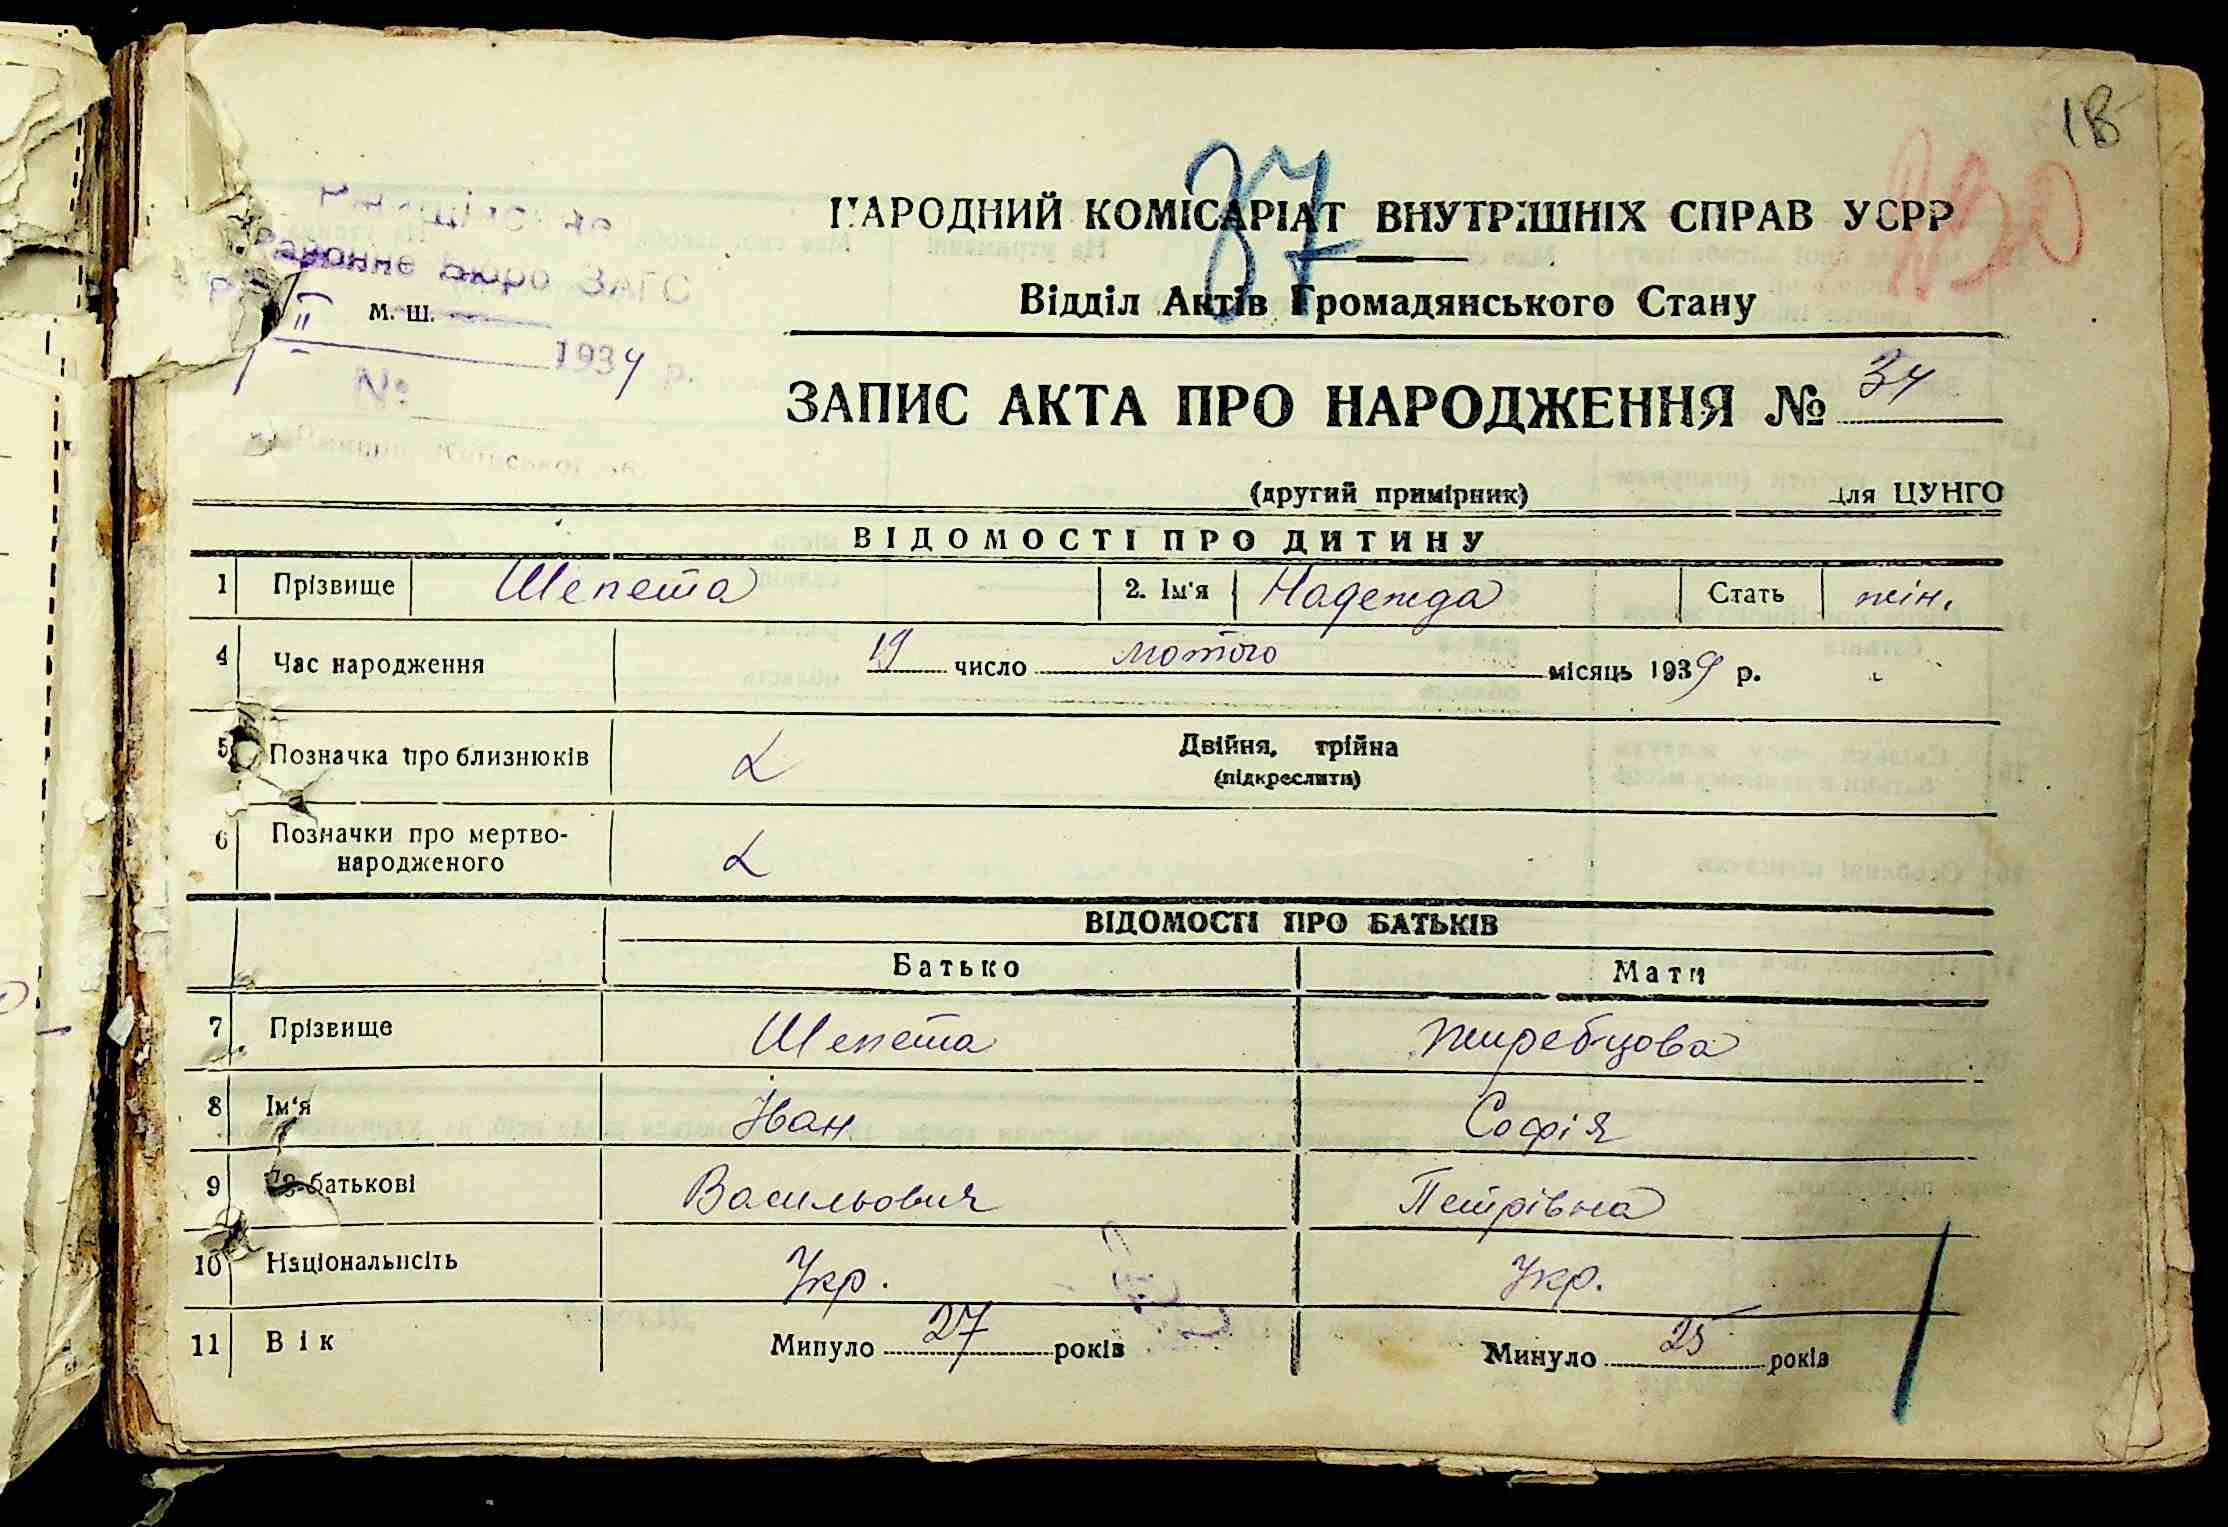 18
230
37
НАРОДНИЙ КОМІСАРІАТ ВНУТРІШНІХ СПРАВ УСРР
Районне Бюро ЗАГС
Відділ Актів Громадянського Стану
II м. ш.
1934 р.
№
ЗАПИС АКТА ПРО НАРОДЖЕННЯ № 34
(другий примірник) для ЦУНГО
ВІДОМОСТІ ПРО ДИТИНУ
1 Прізвище Шепета 2. Ім'я Надежда Стать жін.
4 Час народження 19 число лютого місяць 1939 р.
5 Позначка про близнюків Двійня, трійна
(підкреслити)
6 Позначки про мертво-
народженого
ВІДОМОСТІ ПРО БАТЬКІВ
Батько Мати
7 Прізвище Шепета Жиребцова
8 Ім'я Іван Софія
9 По-батькові Васильович Петрівна
10 Національність Укр. Укр.
11 Вік Минуло 27 років Минуло 25 років